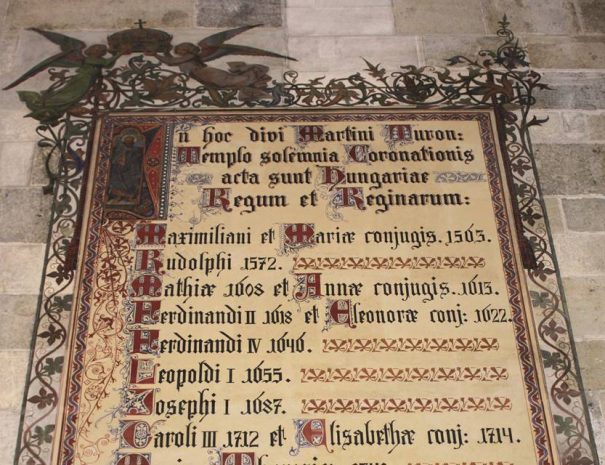 In hoc divi Martini Turon:
Templo solemnia Coronationis
acta sunt Hungariae
Regum et Reginarum:
Maximiliani et Mariæ conjugis. 1563.
Rudolphi 1572.
Mathiæ 1608 et Annæ conjugis. 1613.
Ferdinandi II 1618 et Eleonoræ conj: 1622.
Ferdinandi IV 1646.
Leopoldi I 1655.
Josephi I 1687.
Caroli III 1712 et Elisabethæ conj: 1714.